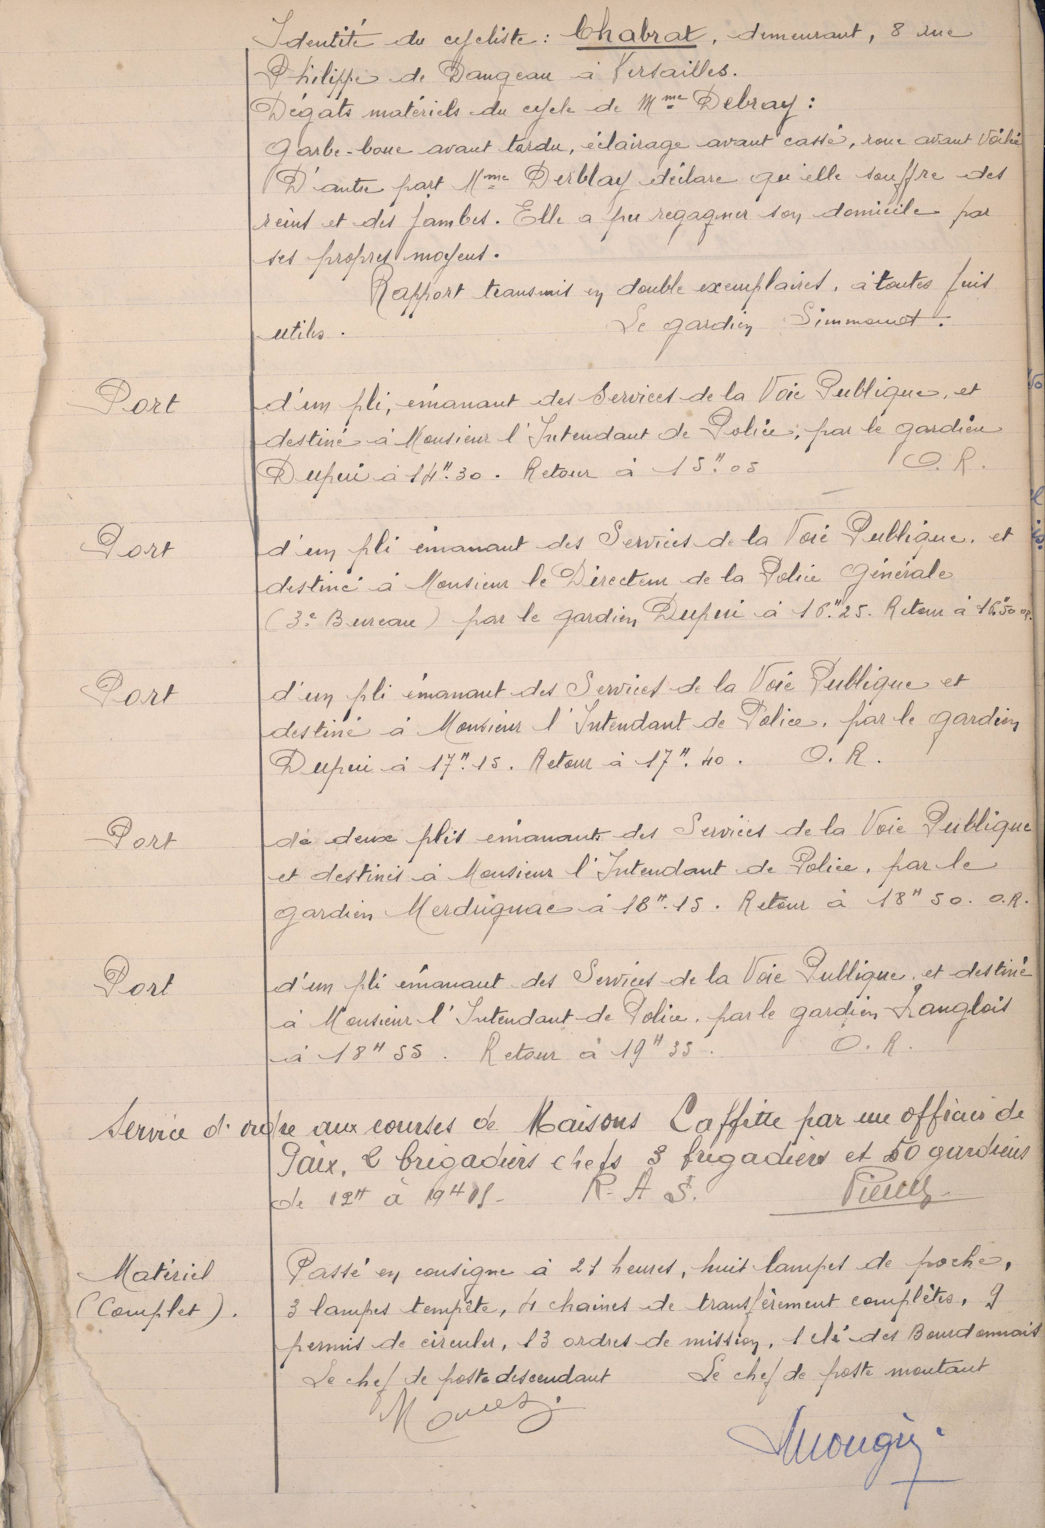 Identité du cycliste : Chabrat, demeurant, 8 rue
Philippe de Dangeau à Versailles.
Dégats matériels du cycle de Mme Debray :
Garbe-boue avant tordu, éclairage avant cassé, roue avant voilée
D'autre part Mme Derblay déclare qu'elle souffre des
reins et des jambes. Elle a pu regagner son domicile par
ses propres moyens.
Rapport transmis en double exemplaires, à toutes fins
utiles. Le gardien Simmonot.
Port d'un pli, émanant des Services de la Voie Publique, et
destiné à Monsieur l'Intendant de Police, par le gardien
Dupui à 14H.30. Retour à 15H.05 O.R.
Port d'un pli émanant des Services de la Voie Publique, et
destiné à Monsieur le Directeur de la Police Générale
(3e Bureau) par le gardien Dupui à 16H.25. Retour à 16H50 O.R.
Port d'un pli émanant des Services de la Voie Publique et
destiné à Monsieur l'Intendant de Police, par le gardien
Dupui à 17H.15. Retour à 17H.40. O.R.
Port de deux plis émanants des Services de la Voie Publique
et destinés à Monsieur l'Intendant de Police, par le
gardien Merdrignac à 18H.15. Retour à 18H50. O.R.
Port d'un pli émanant des Services de la Voie Publique, et destiné
à Monsieur l'Intendant de Police, par le gardien Langlois
à 18H55. Retour à 19H35. O.R.
Service d'ordre aux courses de Maisons Laffitte par un officier de
Paix, 2 brigadiers chefs 3 brigadiers et 50 gardiens
de 12H à 19H15- R.A.S.
Matériel Passé en consigne à 21 heures, huit lampes de poche,
(Complet). 3 lampes tempête, 4 chaines de transfèrement complètes, 9
permis de circuler, 13 ordres de mission, 1 clé des Bourdonnais
Le chef de poste descendant Le chef de poste montant